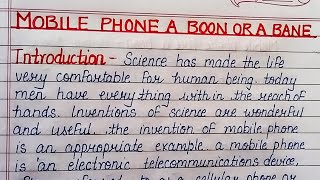 MOBILE PHONE A BOON OR A BANE
Introduction - Science has made the life
very comfortable for human being today
men have everything within the reach of
hands. Inventions of science are wonderful
and useful. the invention of mobile phone
is an appropriate example. a mobile phone
is 'an electronic telecommunications device,